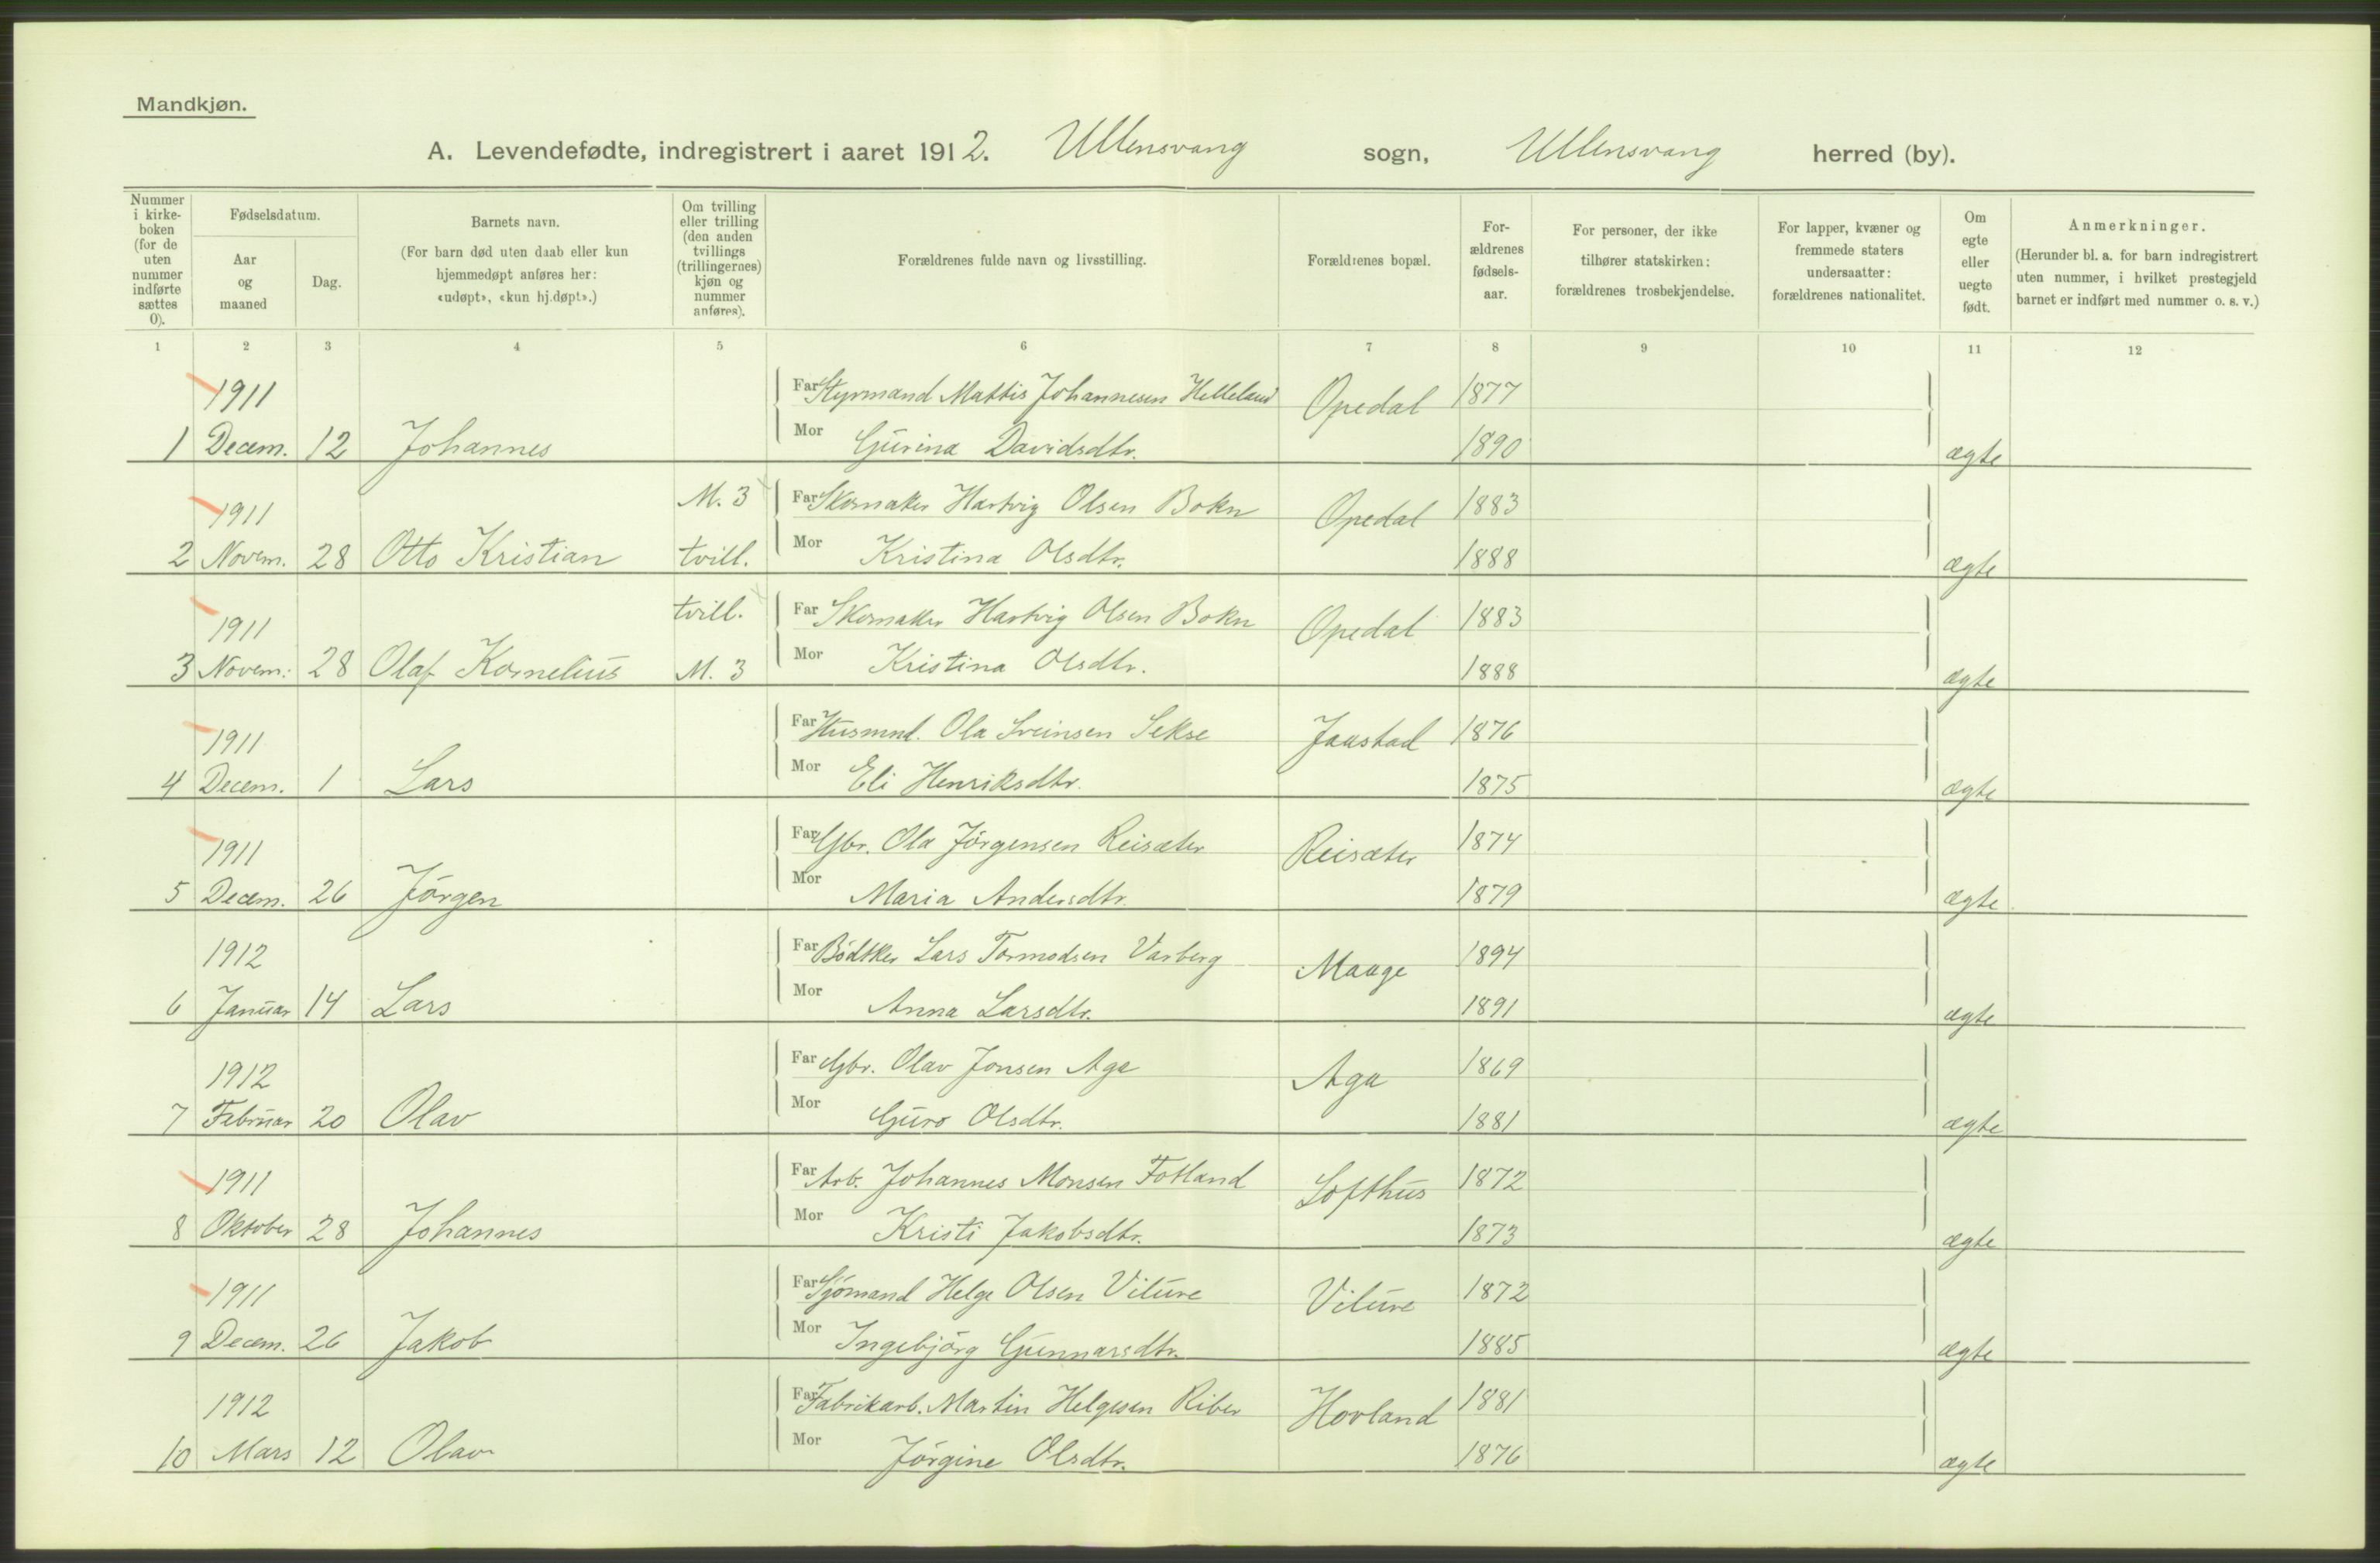 Mandkjøn.
A. Levendefødte, indregistrert i aaret 1912. Ullensvang sogn, Ullensvang herred (by).
Nummer i kirke-boken (for de uten nummer indførte sættes 0).
Fødselsdatum.
Aar og maaned
Dag.
Barnets navn.
(For barn død uten daab eller kun hjemmedøpt anføres her: «udøpt», «kun hj.døpt».)
Om tvilling eller trilling (den anden tvillings (trillingernes) kjøn og nummer anføres).
Forældrenes fulde navn og livsstilling.
Forældrenes bopæl.
For-ældrenes fødsels-aar.
For personer, der ikke tilhører statskirken: forældrenes trosbekjendelse.
For lapper, kvæner og fremmede staters undersaatter: forældrenes nationalitet.
Om egte eller uegte født.
Anmerkninger.
(Herunder bl. a. for barn indregistrert uten nummer, i hvilket prestegjeld barnet er indført med nummer o. s. v.)
1 2 3 4 5 6 7 8 9 10 11 12
1911 Far Styrmand Mattis Johannesen Helleland Opedal 1877
1 Decem. 12 Johannes Mor Gurina Davidsdtr. 1890 ægte
1911 M. 3 Far Skomaker Hartvig Olsen Bokn Opedal 1883
2 Novem. 28 Otto Kristian tvill. Mor Kristina Olsdtr. 1888 ægte
1911 tvill. Far Skomaker Hartvig Olsen Bokn Opedal 1883
3 Novem. 28 Olaf Kornelius M. 3 Mor Kristina Olsdtr. 1888 ægte
1911 Far Husmnd. Ola Sveinsen Sekse Jaastad 1876
4 Decem. 1 Lars Mor Eli Henriksdtr. 1875 ægte
1911 Far Gbr. Ola Jørgensen Reisæter Reisæter 1874
5 Decem. 26 Jørgen Mor Maria Andersdtr. 1879 ægte
1912 Far Bødtker Lars Tormodsen Varberg Maage 1894
6 Januar 14 Lars Mor Anna Larsdtr. 1891 ægte
1912 Far Gbr. Olav Jonsen Aga Aga 1869
7 Februar 20 Olav Mor Guro Olsdtr. 1881 ægte
1911 Far Arb. Johannes Monsen Fotland Lofthus 1872
8 Oktober 28 Johannes Mor Kristi Jakobsdtr. 1873 ægte
1911 Far Sjømand Helge Olsen Vilure Vilure 1872
9 Decem. 26 Jakob Mor Ingebjørg Gunnarsdtr. 1885 ægte
1912 Far Fabrikarb. Martin Helgesen Riber Hovland 1881
10 Mars 12 Olav Mor Jørgine Olsdtr. 1876 ægte